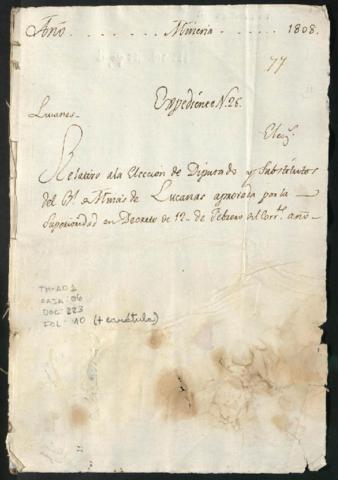 Año . . . . . . . . Mineria . . . . . 1808.
77
Expediente N. 26.
Lucanas.
Elecc.n
Relativo ala Eleccion de Diputado y Substitutos
del Rl. de Minas de Lucanas aprovada por la
Superioridad en Decreto de 12 de Febrero del Corr.te año
TM-AD 2
CAJA: 06
DOC: 223
FOL: 10 (+ carátula)